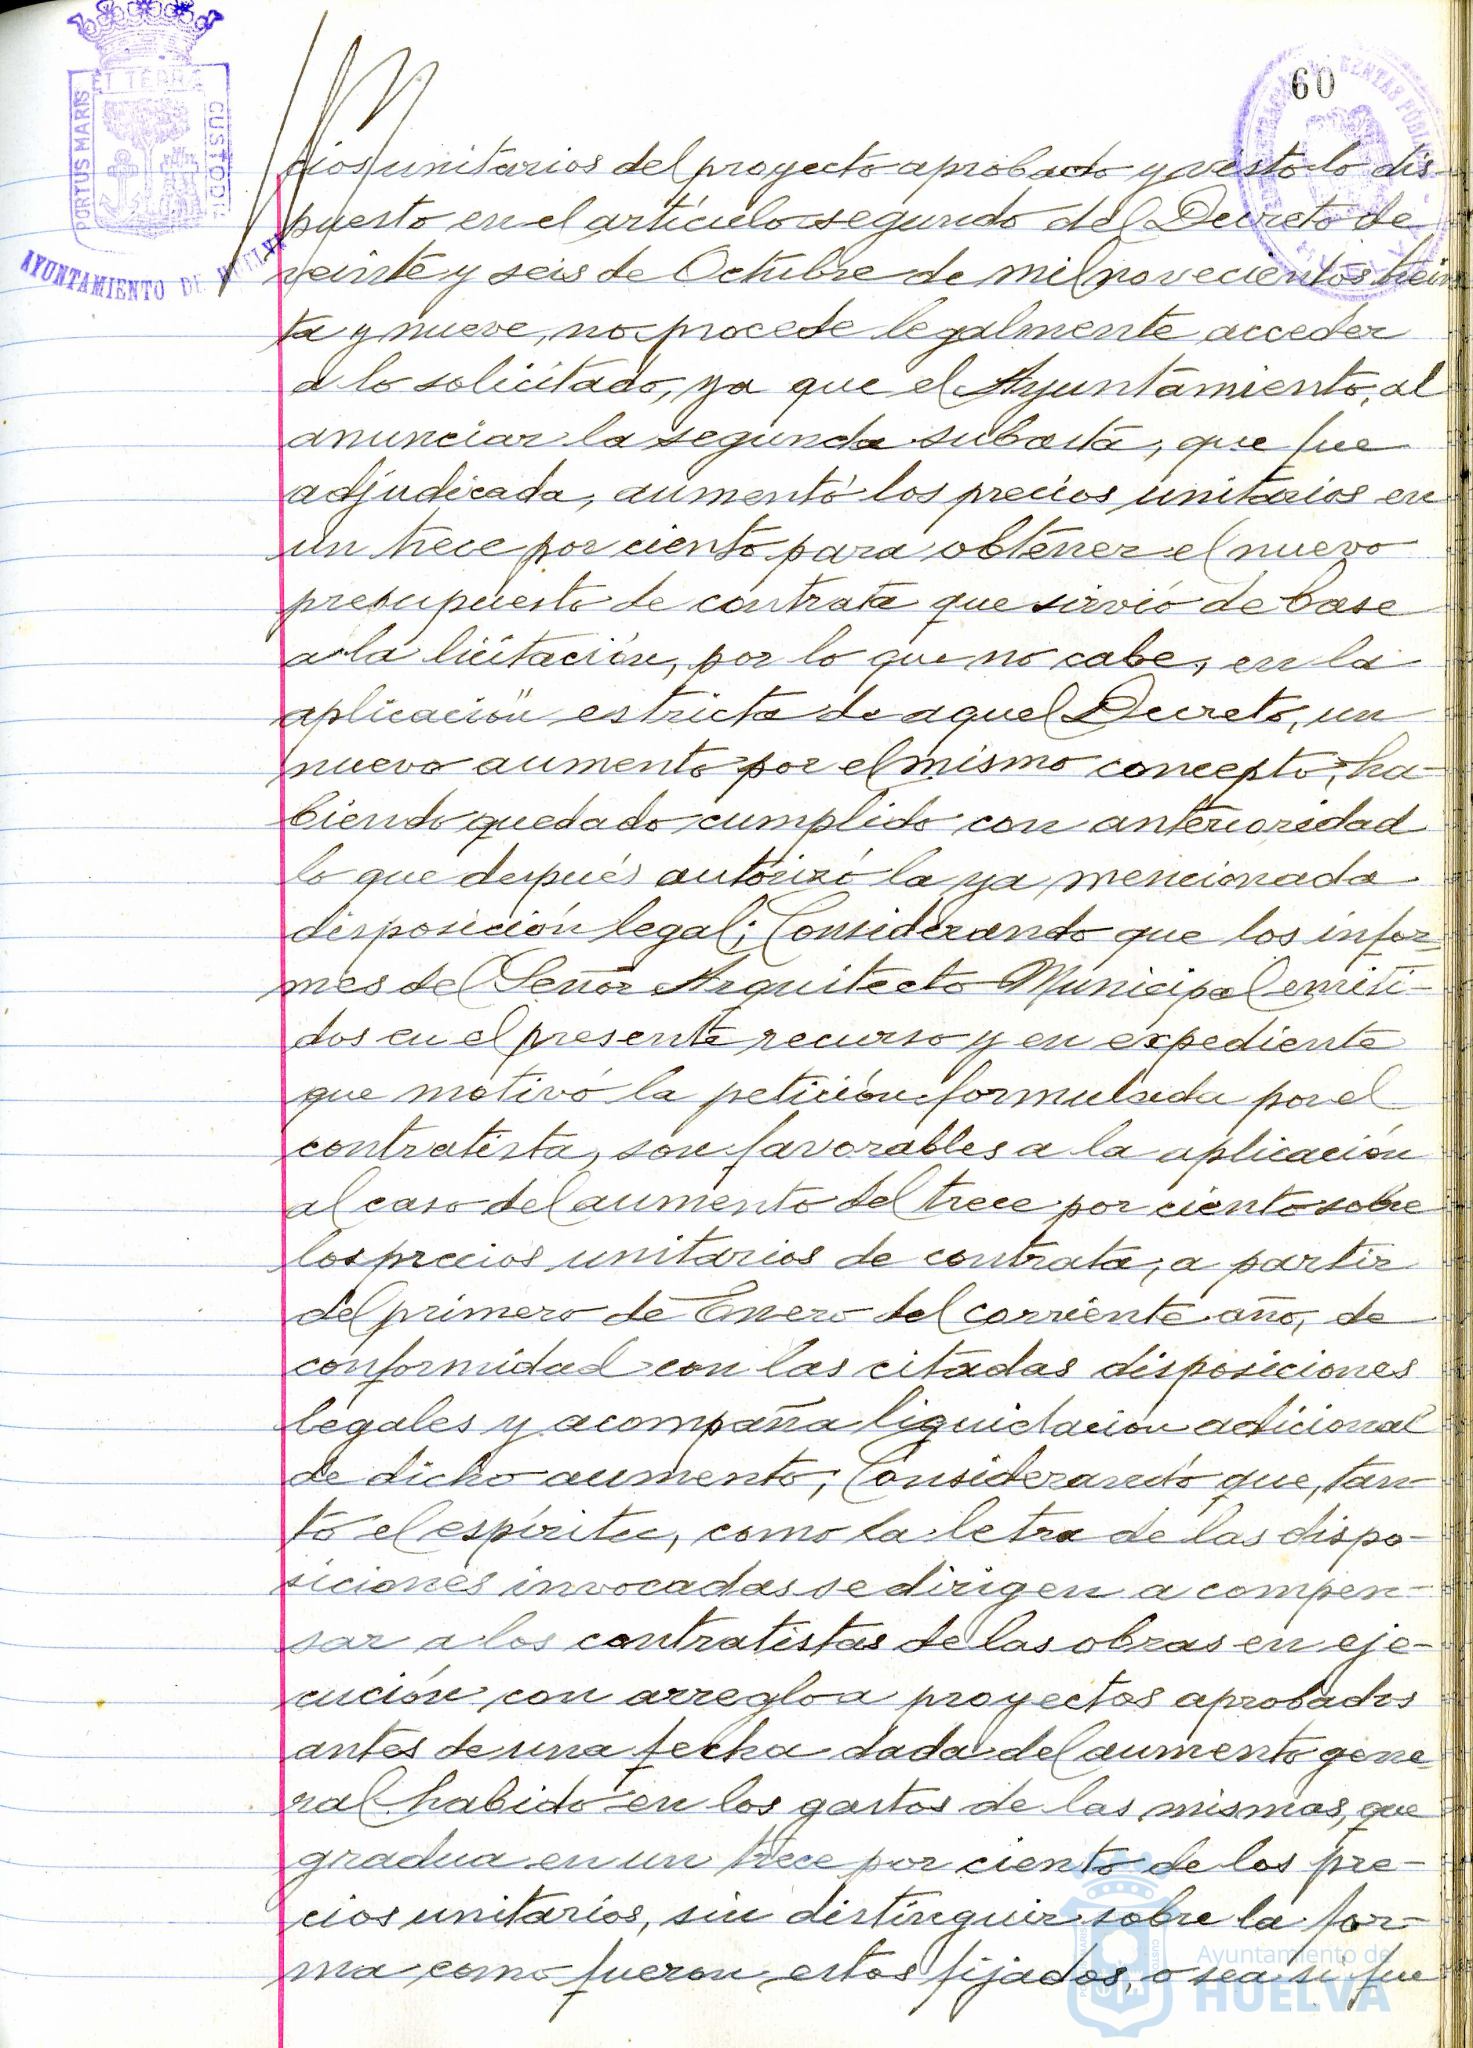 60
PORTUS MARIS
ET TERRÆ
CUSTODIA
AYUNTAMIENTO DE HUELVA
cios unitarios del proyecto aprobado y visto lo dis-
puesto en el artículo segundo del Decreto de
veinte y seis de Octubre de mil novecientos trein
ta y nueve, no procede legalmente acceder
a lo solicitado, ya que el Ayuntamiento, al
anunciar la segunda subasta, que fue
adjudicada, aumentó los precios unitarios en
un trece por ciento para obtener el nuevo
presupuesto de contrata que sirvió de base
a la licitación, por lo que no cabe, en la
aplicación estricta de aquel Decreto, un
nuevo aumento por el mismo concepto, ha-
biendo quedado cumplido con anterioridad
lo que después autorizó la ya mencionada
disposición legal; Considerando que los infor-
mes del Señor Arquitecto Municipal emiti-
dos en el presente recurso y en expediente
que motivó la petición formulada por el
contratista, son favorables a la aplicación
al caso del aumento del trece por ciento sobre
los precios unitarios de contrata, a partir
del primero de Enero del corriente año, de
conformidad con las citadas disposiciones
legales y acompaña liquidacion adicional
de dicho aumento; Considerando que, tan-
to el espíritu, como la letra de las dispo-
siciones invocadas se dirigen a compen-
sar a los contratistas de las obras en eje-
cución con arreglo a proyectos aprobados
antes de una fecha dada del aumento gene
ral habido en los gastos de las mismas, que
gradua en un trece por ciento de los pre-
cios unitarios, sin distinguir sobre la for-
ma como fueron estos fijados, o sea si fue
Ayuntamiento de
HUELVA